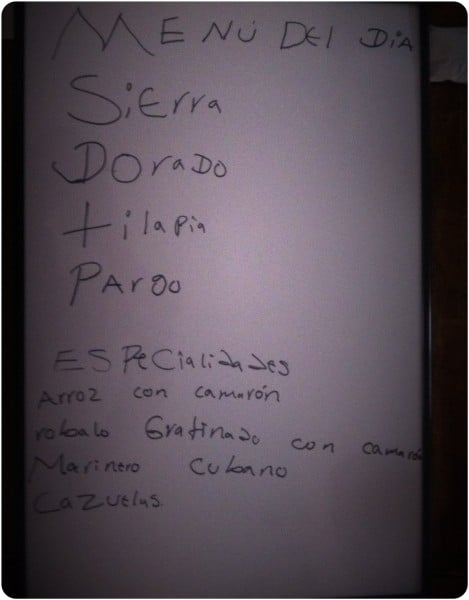 MENÚ DEL DIA
SiErra
DOraDO
tilapia
PArgo
ESPeCialidades
Arroz con camarón
robalo Gratinado con camarón
Marinero Cubano
Cazuelas